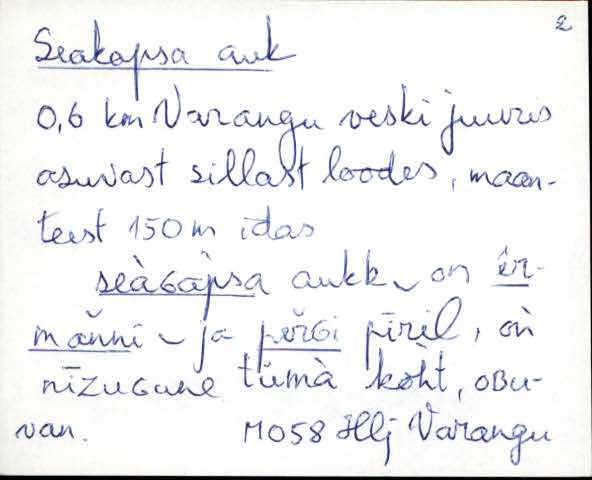 2
Seakapsa auk
0,6 km Varangu veski juures
asuvast sillast loodes, maan-
teest 150 m idas
seàɢàpsa aukk ‿ on êr-
mǎnni ‿ ja pěrɢi pīril, oǹ
nīzuɢune tümà kòht, oʙu-
van. M058 Hlj Varangu